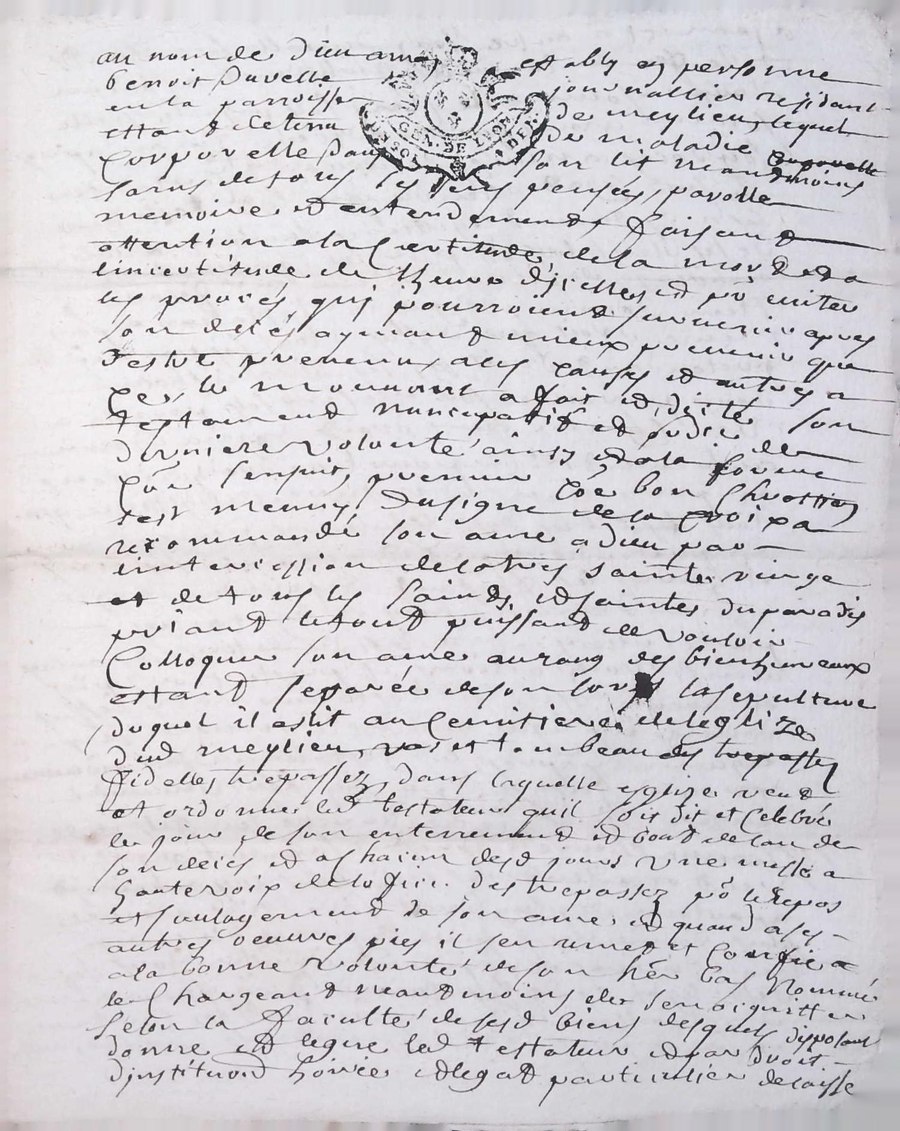 au nom de Dieu amen establÿ en personne
Benoit Pavelle journallier residant
en la parroisse de meylieu, lequel
estant detenu de maladie
GEN. DE LYON
corporelle dans son lit neantmoins
sains de tous ses sens pensées, parolle
memoire et entendement faisant
attention a la Certitude de la mort et a
lincertitude de lheure dicelle et po eviter
les procés qui pourroient survenir apres
son decés aymant mieux prevenir que
destre prevenu, a ces causes et autres a
ce, le mouvant a fait et dicté son
testament nuncupatif et ordre de
derniere volonté ainsy et a la forme
que sensuit, premier coe bon Chrestien
sest meuny du signe de la croix a
recommandé son ame a dieu par
lintercession de la tres sainte vierge
et de tous les saints et saintes du paradis
priant le tout puissant de vouloir
Colloquer son ame au rang des bienheureux
estant separée de son corps la sepulture
duquel il eslit au Cemitiere de leglize
dud meylieu, vas et tombeau des
fidelles trepassez, dans laquelle eglize veut
et ordonne led testateur quil soit dit et Celebré
le jour de son enterrement et bout de lan de
son deces et a chacun desd jours une messe a
haute voix de loffice des trepassez po le repos
et soulagement de son ame, et quand a ses
autres oeuvres pies il sen remet et confie a
a la bonne volonté de son her bas nommé
le Chargeant neantmoins de sen acquitter
selon la faculté de sesd biens desquels disposant
donne et legue led testateur et par droit
dinstitution hoirie et legat particulier delaisse